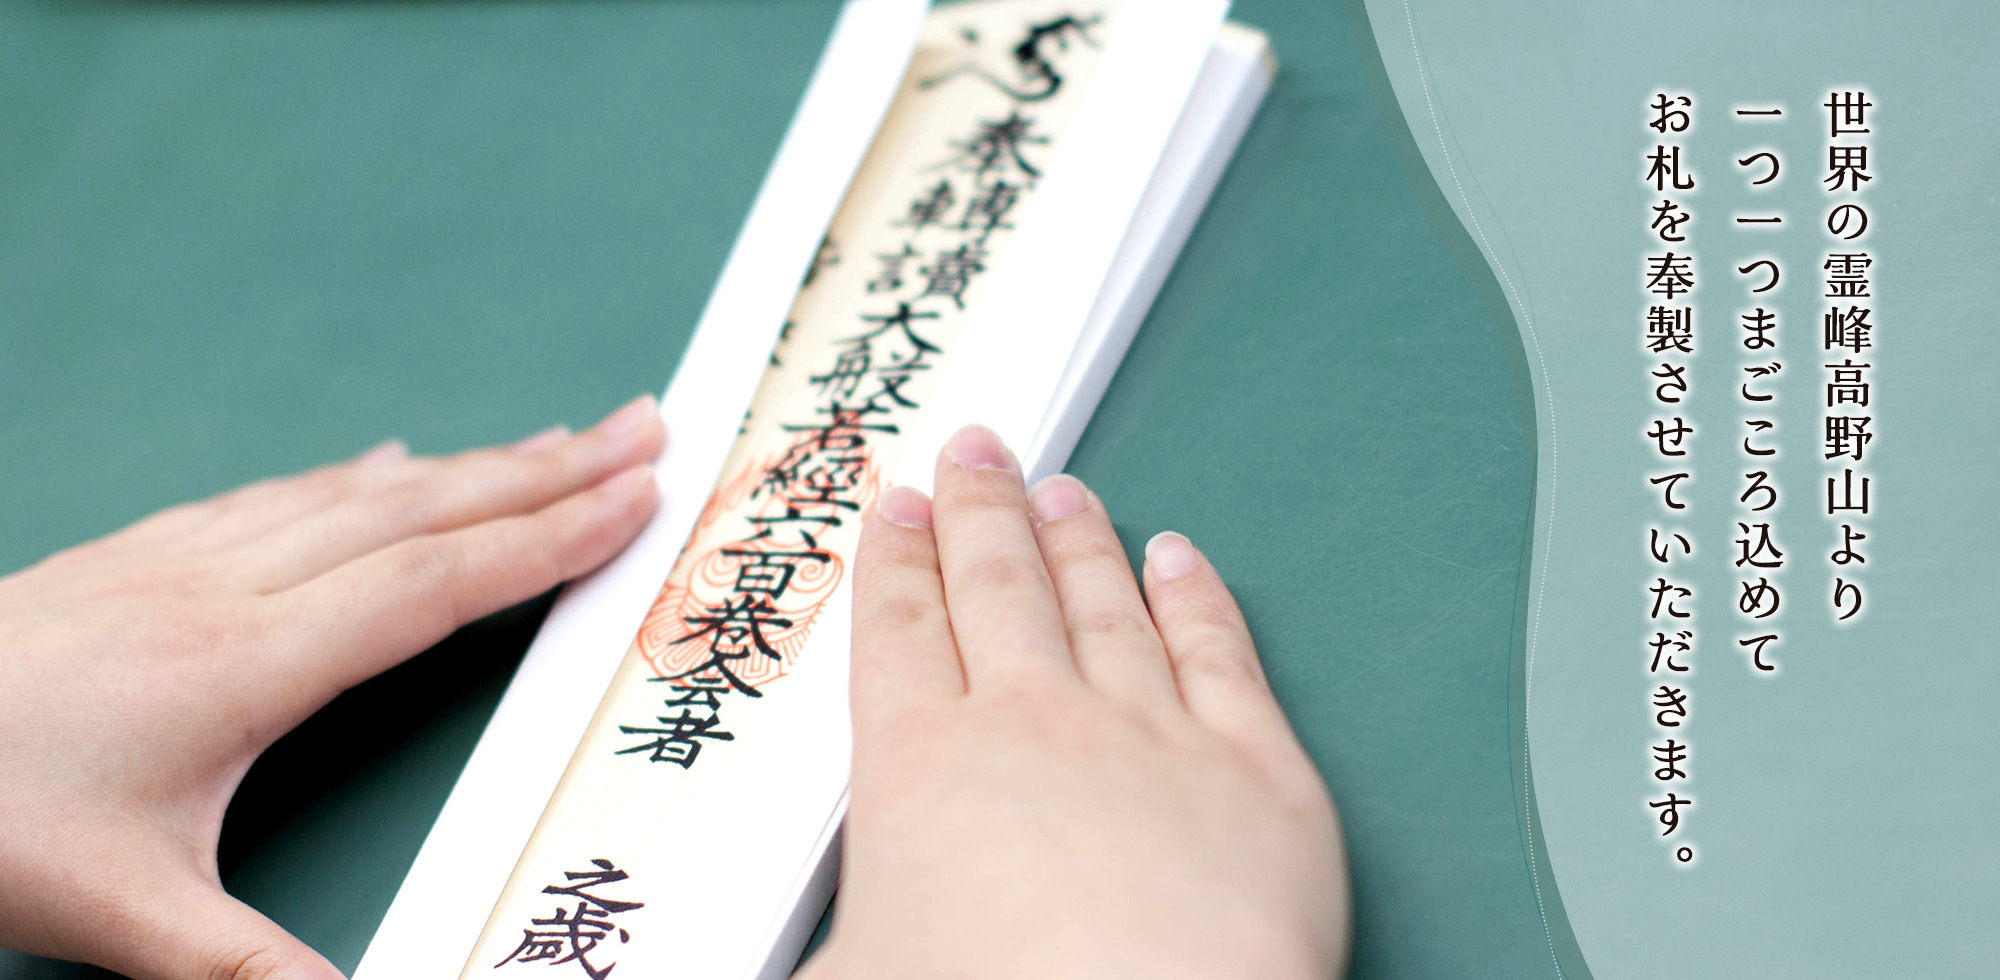 世界の霊峰高野山より
一つ一つまごころ込めて
お札を奉製させていただきます。
奉轉讀大般若經六百巻会者
之歳